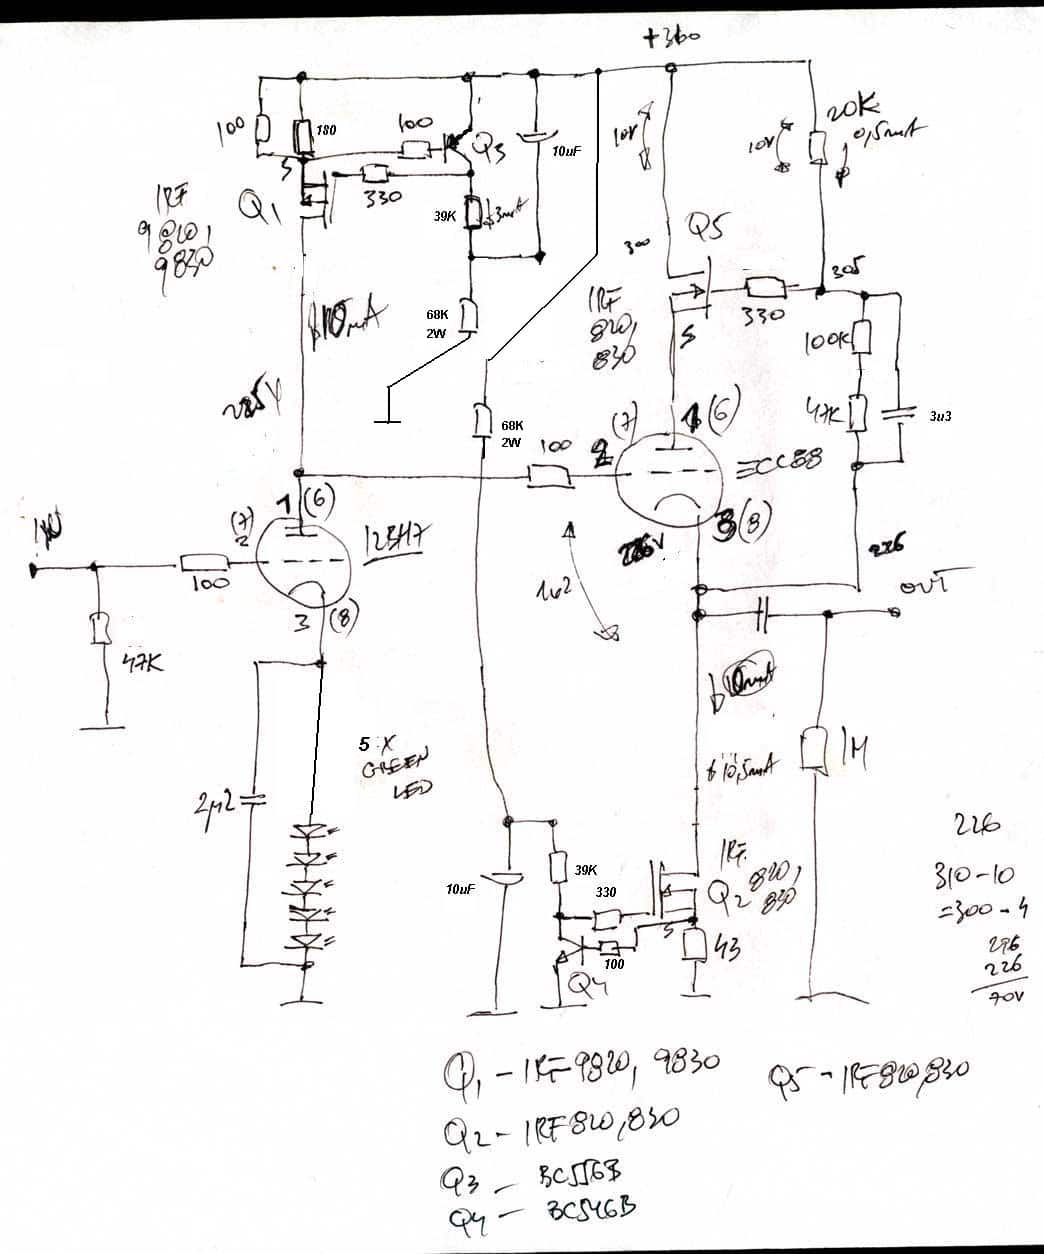 +360
100
180
100
Q3
10uF
10V
10V
20K
0,5mA
S
330
Q1
IRF
9820,
9830
39K
3mA
Q5
300
305
IRF
820,
830
330
S
100K
47K
3u3
68K
2W
10mA
225V
68K
2W
100
2
(7)
1
(6)
ECC88
3
(8)
226V
226
OUT
1
(6)
(7)
2
12BH7
100
3
(8)
47K
1u2
10mA
10,5mA
1M
5 X
GREEN
LED
2µ2
10uF
39K
330
IRF
820,
830
Q2
S
100
43
Q4
226
310-10
=300-4
296
226
70V
Q1 - IRF 9820, 9830
Q5 - IRF 820,830
Q2 - IRF 820,830
Q3 - BC556B
Q4 - BC546B